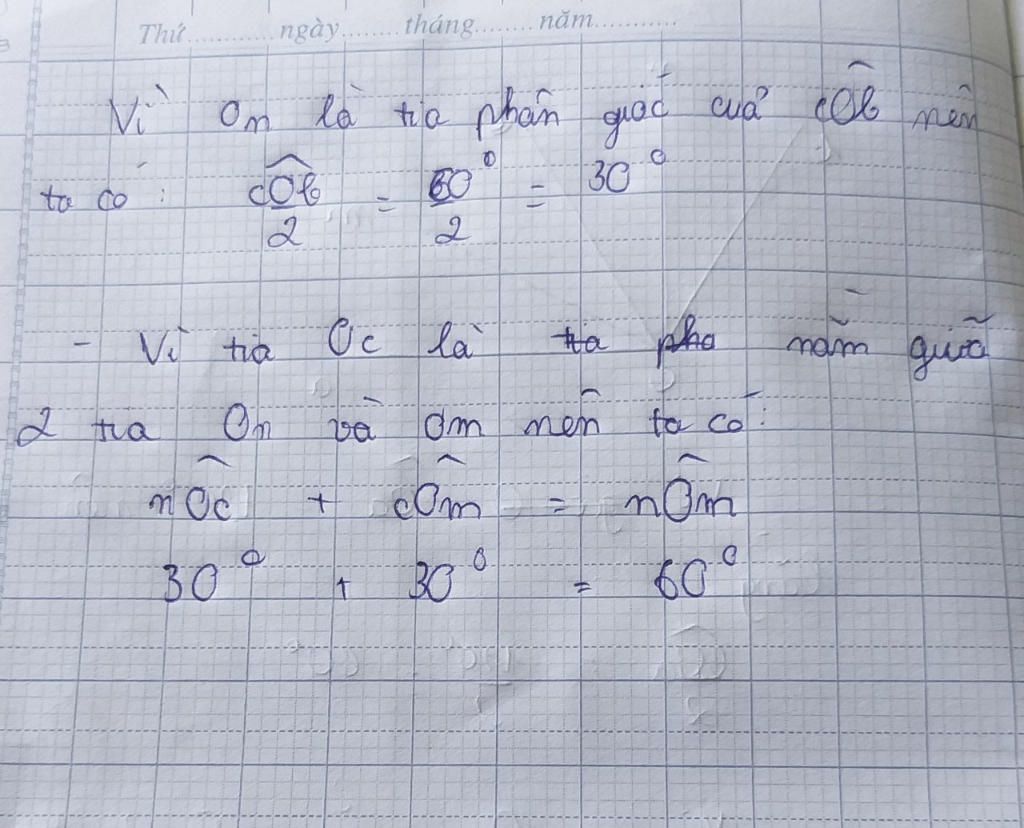 Thứ............ngày.......tháng........năm............
Vì On là tia phân giác của cOb nên
ta có : cOb/2 = 60°/2 = 30°
- Vì tia Oc là nằm giữa
2 tia On và Om nên ta có:
nOc + cOm = nOm
30° + 30° = 60°